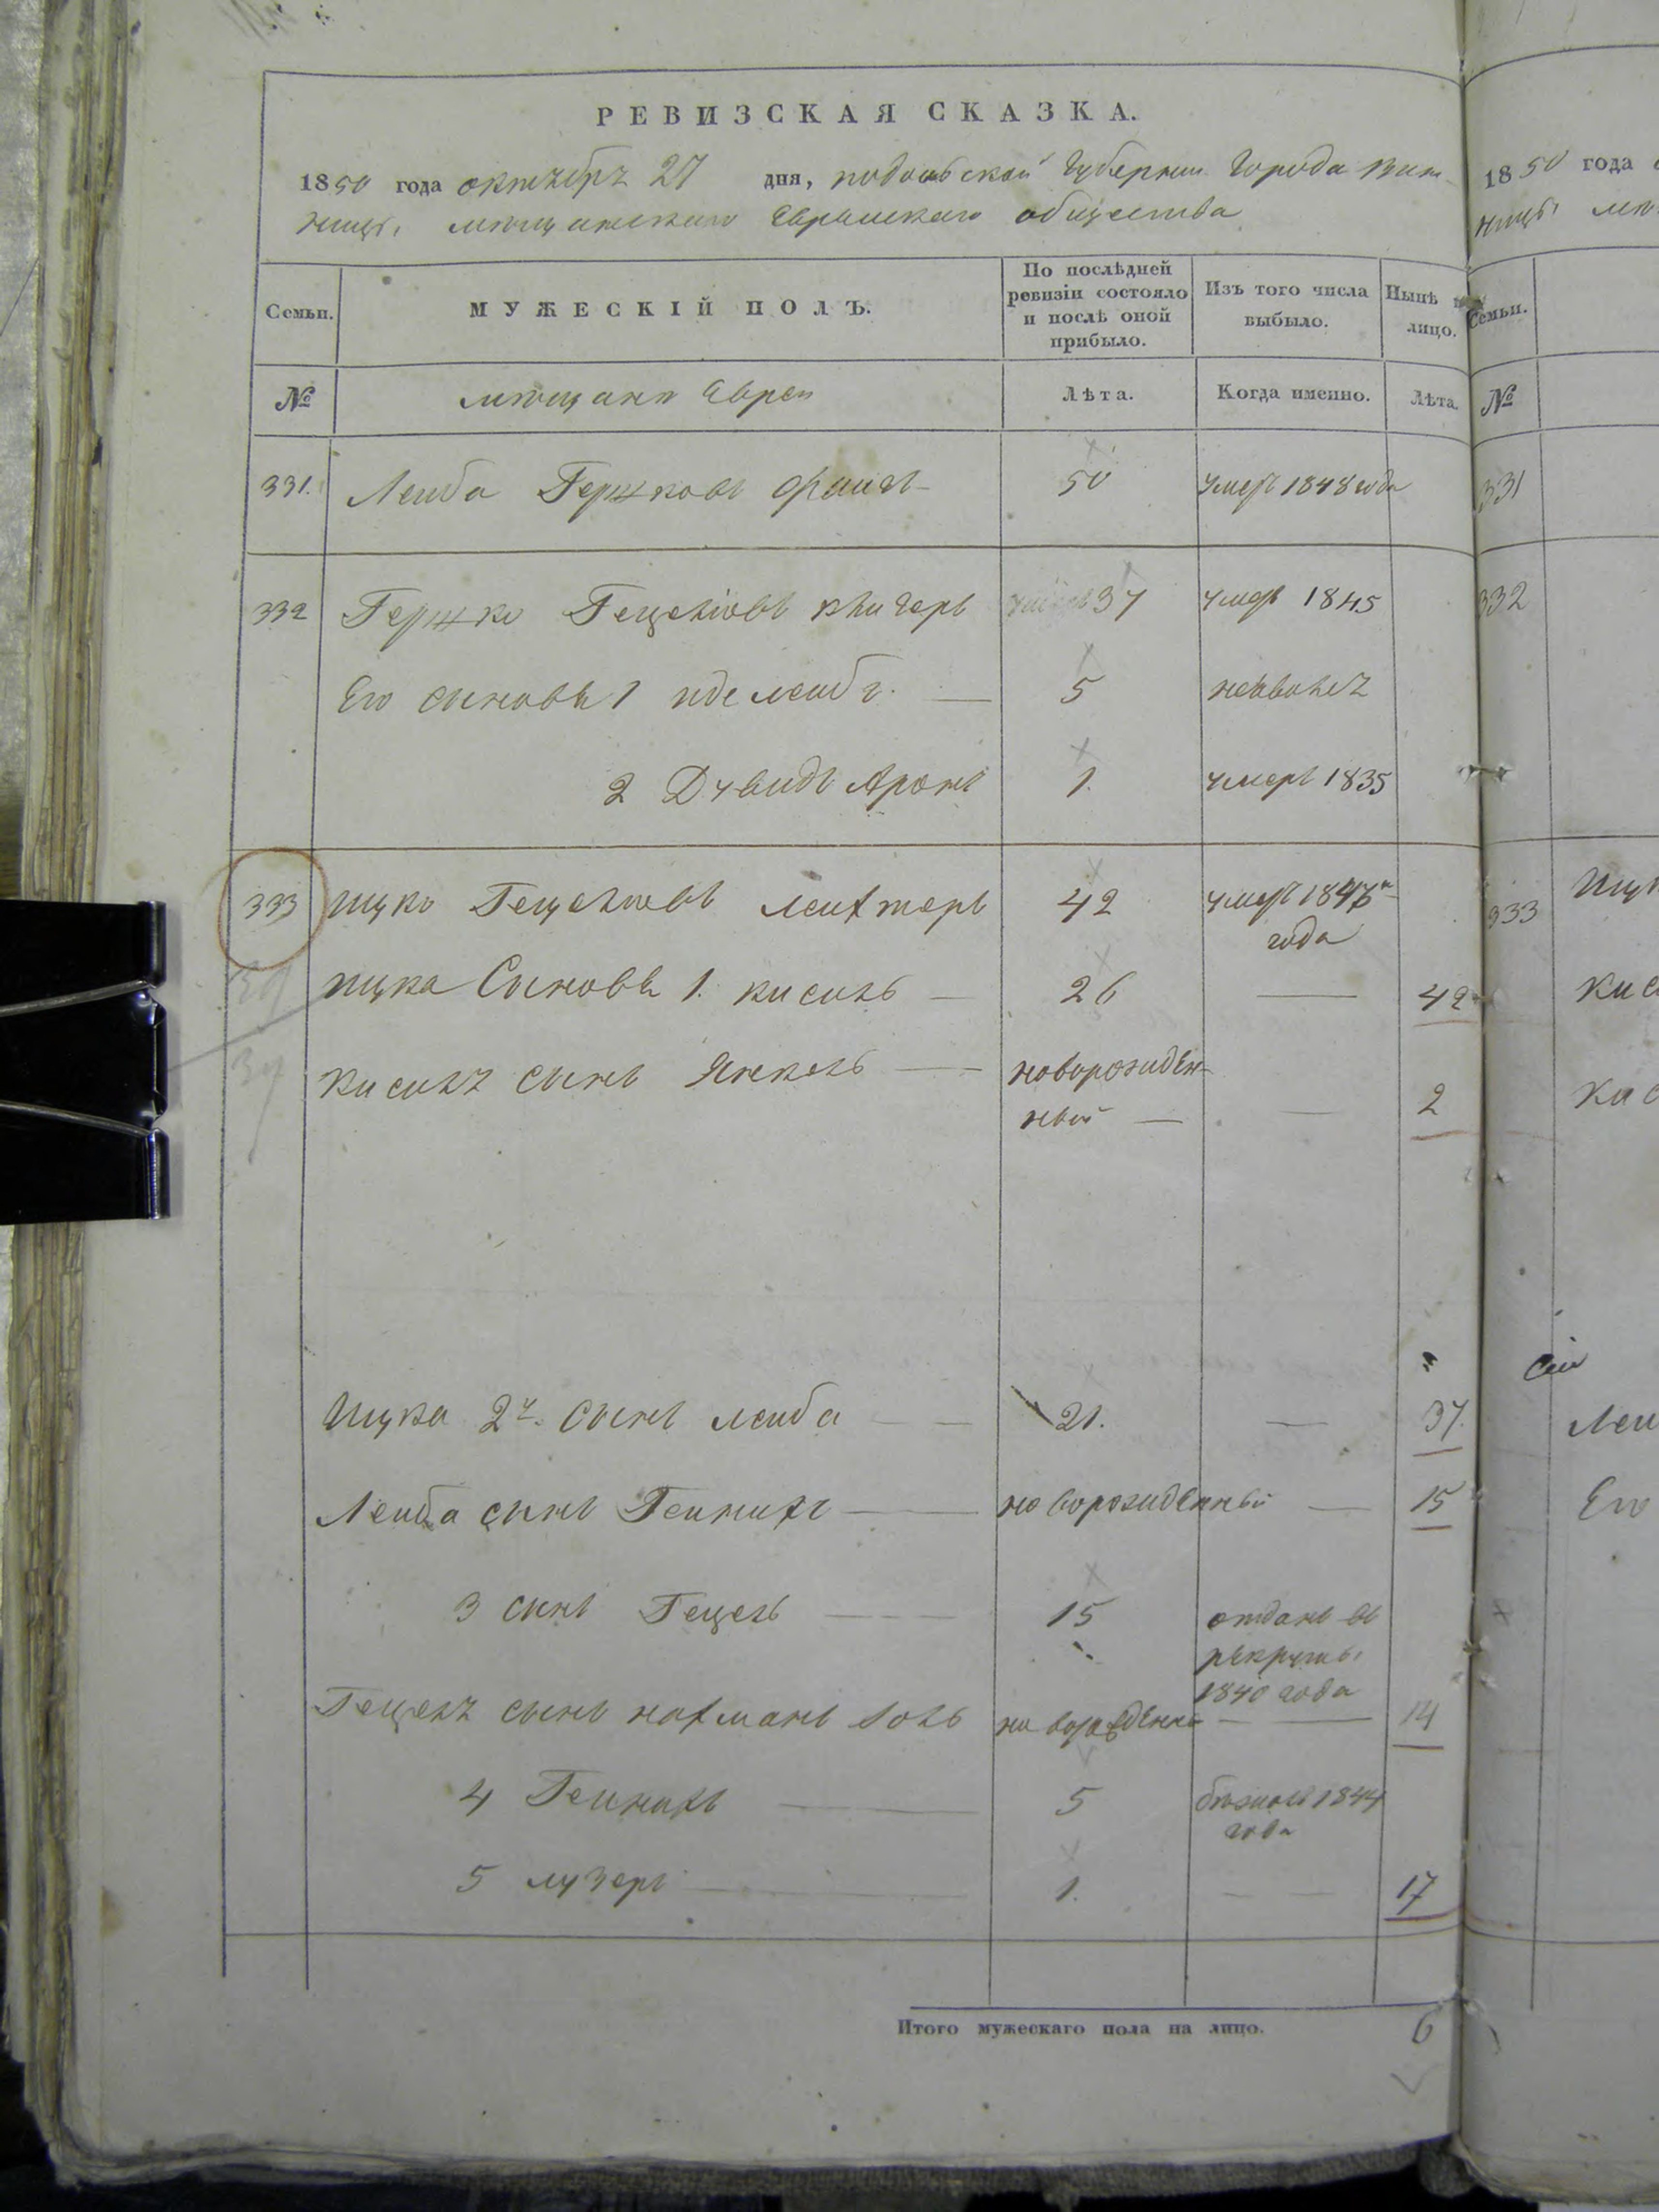 РЕВИЗСКАЯ СКАЗКА.
1850 года октября 27 дня, подольской Губернии Города Вин
ницы, мѣщанскаго Еврейскаго общества
Семьи.
МУЖЕСКІЙ ПОЛЪ.
По послѣдней ревизіи состояло и послѣ оной прибыло.
Изъ того числа выбыло.
Нынѣ лицо.
№
мѣщане Евреи
Лѣта.
Когда именно.
Лѣта.
331. Лейба Гершковъ 50 умеръ 1848 года
332 Гершко Гецеліовъ 37 умеръ 1845
Его сыновья 1 5
2 Дувидъ Аронъ 1. умеръ 1835
333 Ицко Гецеліовъ Лейхтеръ 42 умеръ 184
года
Ицка Сыновья 1. Кисиль 26 — 42
Кисиля сынъ Янкель новорожден-
ный — — 2
Ицка 2й. сынъ лейба 21. — 37.
Лейба сынъ Гейнихъ новорожденный — 15
3 сынъ Гецель 15 отданъ въ
рекруты
1840 года
Гецеля сынъ нахманъ новорожденный — 14
4 Гейнихъ 5 бѣжалъ 1844
года
5 лузеръ 1. — 17
Итого мужескаго пола на лицо. 6
1850 года
ницы
Семьи.
№
331
332
333
Ицк
Кис
Кис
Леи
Его